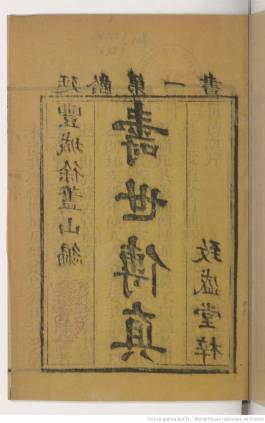 延齡第一書
豐城徐藎山編
壽世傳真
致盛堂梓
Source gallica.bnf.fr / Bibliothèque nationale de France